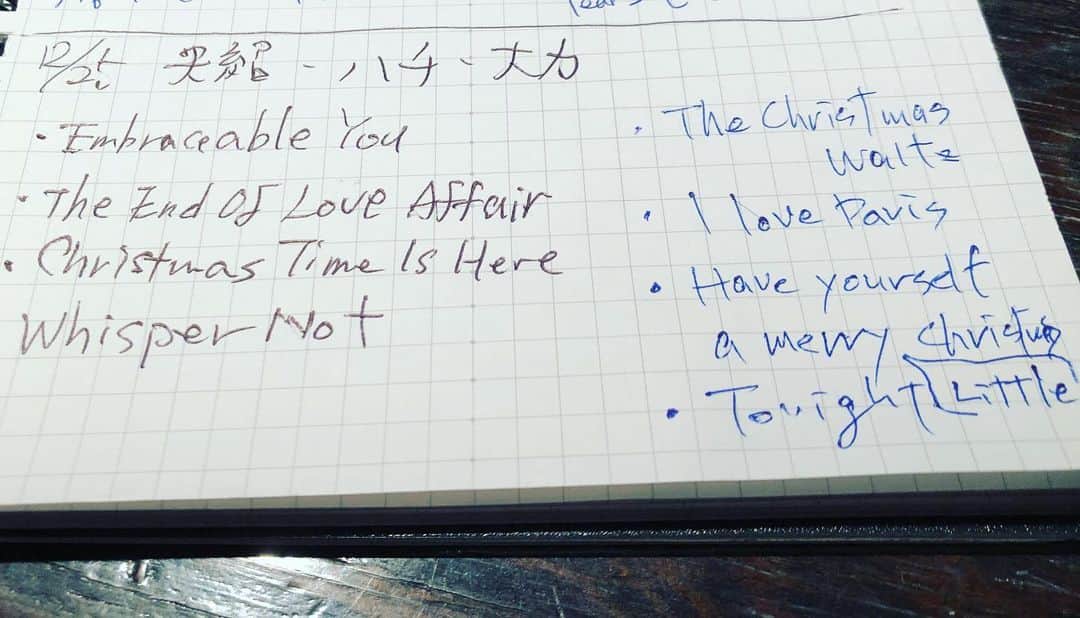 12/25 ・ハチ・大力
・Embraceable You
・The End Of Love Affair
・Christmas Time Is Here
Whisper Not
・The Christmas
Waltz
・I love Paris
・Have yourself
a merry Christmas
Little
・Tonight